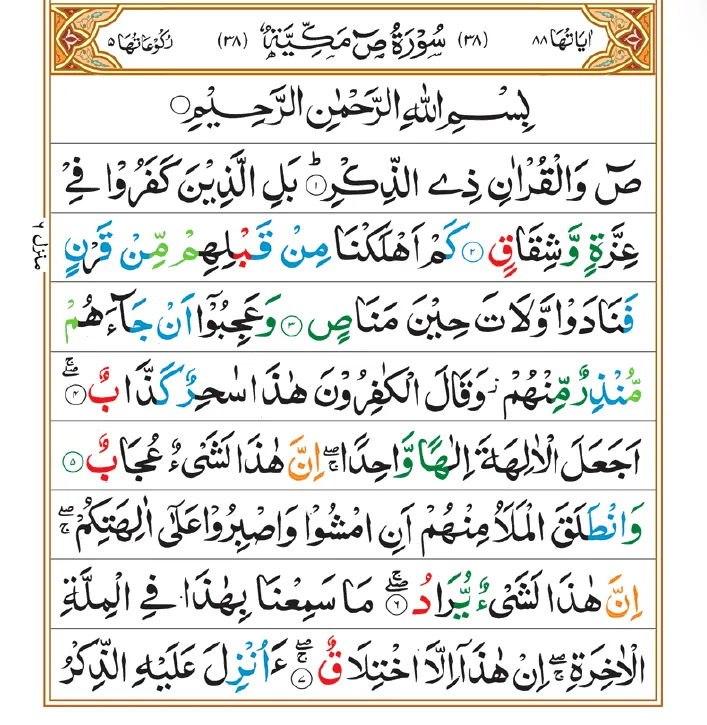 اٰیَاتُهَا ۸۸ (۳۸) سُوْرَةُ صٓ مَكِّيَّةٌ (۳۸) رُكُوْعَاتُهَا ۵
بِسْمِ اللّٰهِ الرَّحْمٰنِ الرَّحِيْمِ ۝
صٓ وَالْقُرْاٰنِ ذِی الذِّكْرِ ؕ۝۱ بَلِ الَّذِيْنَ كَفَرُوْا فِیْ
عِزَّةٍ وَّشِقَاقٍ ۝۲ كَمْ اَهْلَكْنَا مِنْ قَبْلِهِمْ مِّنْ قَرْنٍ
فَنَادَوْا وَّلَاتَ حِيْنَ مَنَاصٍ ۝۳ وَعَجِبُوْۤا اَنْ جَآءَهُمْ
مُّنْذِرٌ مِّنْهُمْ ؗ وَقَالَ الْكٰفِرُوْنَ هٰذَا سٰحِرٌ كَذَّابٌ ۖۚ۝۴
اَجَعَلَ الْاٰلِهَةَ اِلٰهًا وَّاحِدًا ۖۚ اِنَّ هٰذَا لَشَیْءٌ عُجَابٌ ۝۵
وَانْطَلَقَ الْمَلَاُ مِنْهُمْ اَنِ امْشُوْا وَاصْبِرُوْا عَلٰۤی اٰلِهَتِكُمْ ۖۚ
اِنَّ هٰذَا لَشَیْءٌ یُّرَادُ ۖۚ۝۶ مَا سَمِعْنَا بِهٰذَا فِی الْمِلَّةِ
الْاٰخِرَةِ ۖۚ اِنْ هٰذَاۤ اِلَّا اخْتِلَاقٌ ۖۚ۝۷ ءَاُنْزِلَ عَلَيْهِ الذِّكْرُ
منزل ۶